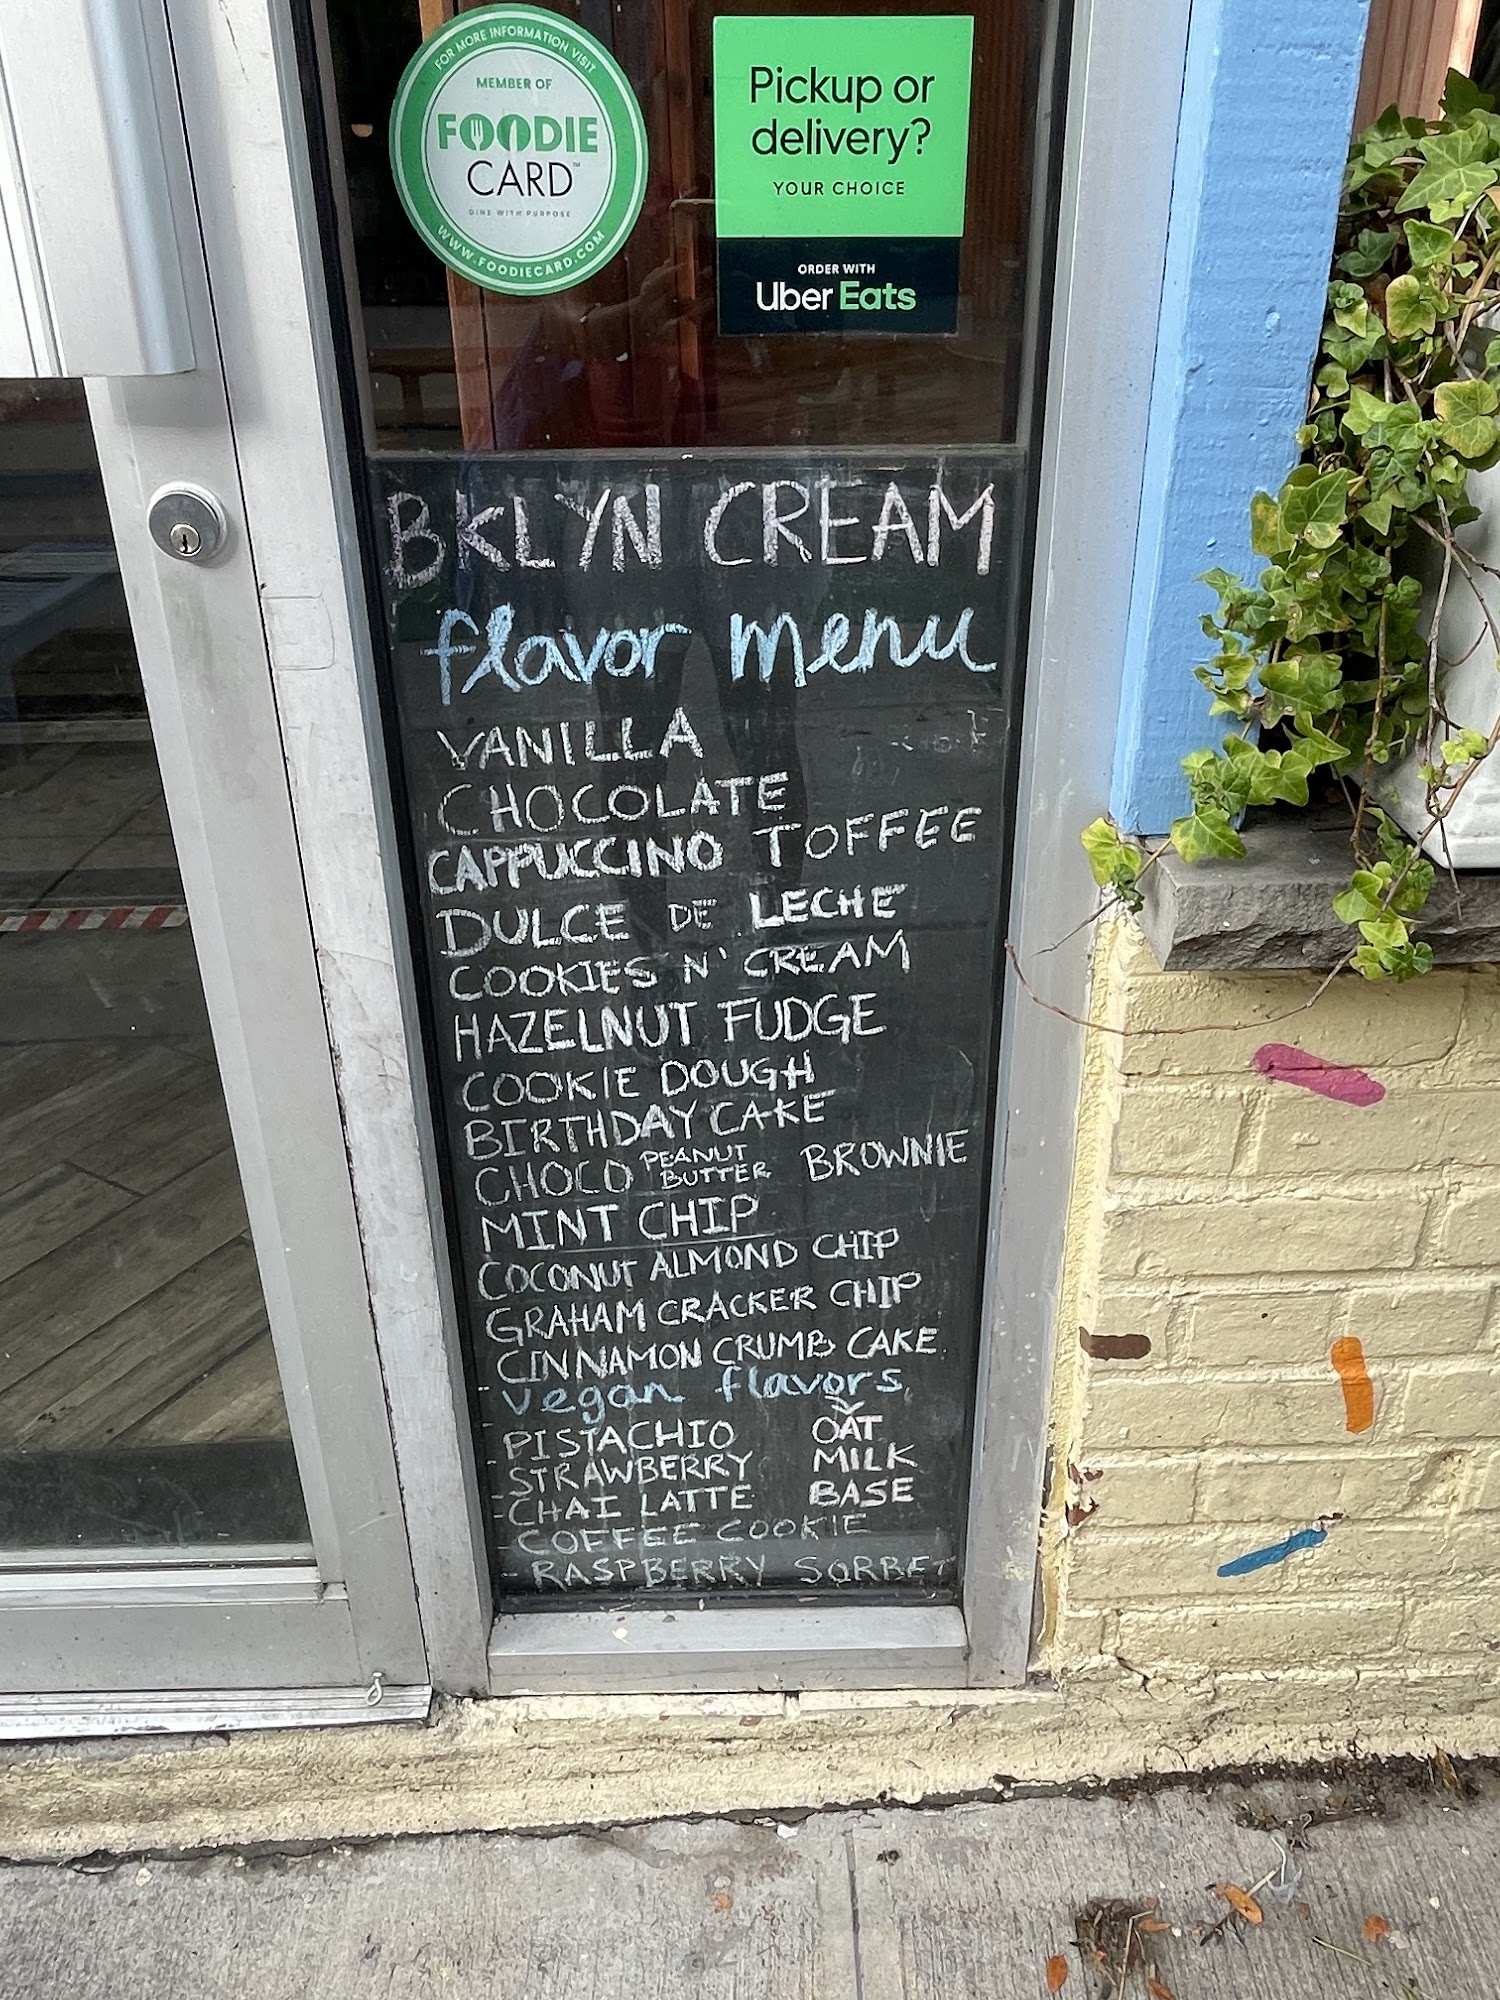 FOR MORE INFORMATION VISIT
MEMBER OF
FOODIE
CARD™
DINE WITH PURPOSE
WWW.FOODIECARD.COM
Pickup or
delivery?
YOUR CHOICE
ORDER WITH
Uber Eats
BKLYN CREAM
flavor menu
VANILLA
CHOCOLATE
CAPPUCCINO TOFFEE
DULCE DE LECHE
COOKIES N' CREAM
HAZELNUT FUDGE
COOKIE DOUGH
BIRTHDAY CAKE
CHOCO PEANUT BUTTER BROWNIE
MINT CHIP
COCONUT ALMOND CHIP
GRAHAM CRACKER CHIP
CINNAMON CRUMB CAKE
- vegan flavors
- PISTACHIO OAT
- STRAWBERRY MILK
- CHAI LATTE BASE
- COFFEE COOKIE
- RASPBERRY SORBET